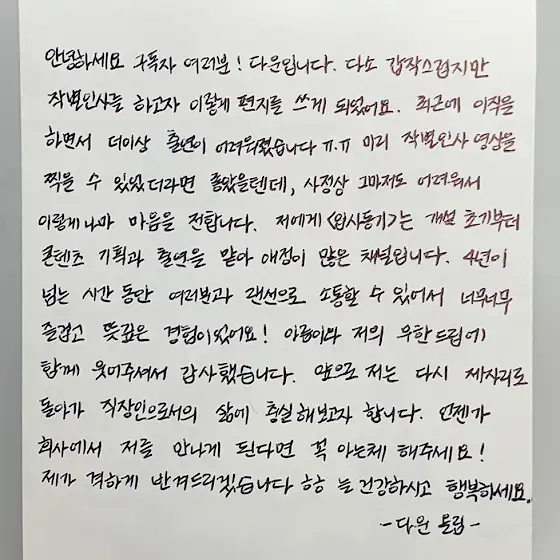 안녕하세요 구독자 여러분! 다운입니다. 다소 갑작스럽지만
작별인사를 하고자 이렇게 편지를 쓰게 되었어요. 최근에 이직을
하면서 더이상 출연이 어려워졌습니다 ㅠ.ㅠ 미리 작별인사 영상을
찍을 수 있었더라면 좋았을텐데, 사정상 그마저도 어려워서
이렇게나마 마음을 전합니다. 저에게 <입사동기>는 개설 초기부터
콘텐츠 기획과 출연을 맡아 애정이 많은 채널입니다. 4년이
넘는 시간 동안 여러분과 랜선으로 소통할 수 있어서 너무너무
즐겁고 뜻깊은 경험이었어요! 아름이와 저의 무한드립에
함께 웃어주셔서 감사했습니다. 앞으로 저는 다시 제자리로
돌아가 직장인으로서의 삶에 충실해보고자 합니다. 언젠가
회사에서 저를 만나게 된다면 꼭 아는체 해주세요!
제가 격하게 반겨드리겠습니다 하하 늘 건강하시고 행복하세요.
-다운 올림-